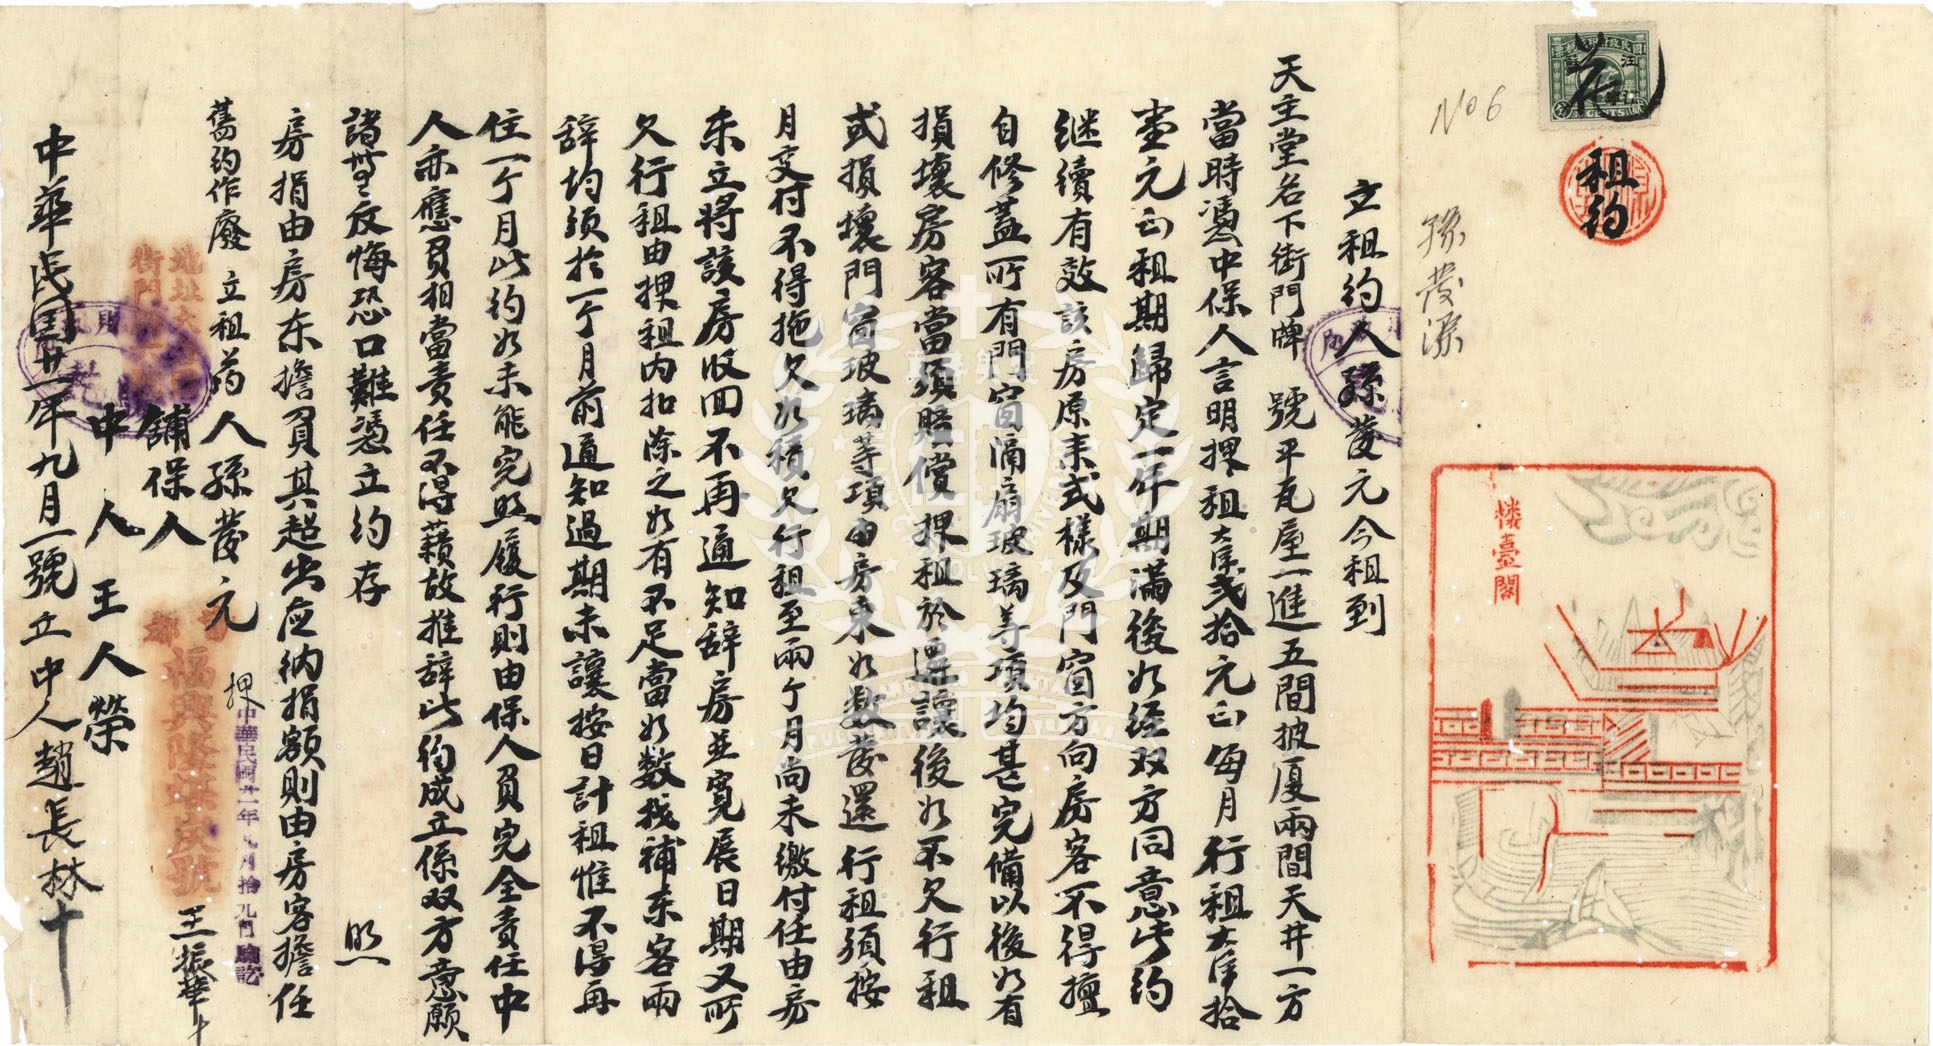 租約
No 6
孫發源
樓臺閣
立租約人孫發元今租到
天主堂名下街門牌 號平瓦屋一進五間披厦兩間天井一方
當時憑中保人言明押租大洋弍拾元正每月行租大洋拾
壹元正租期歸定一年期滿後如經双方同意此約
继續有效該房原来式樣及門窗方向房客不得擅
自修蓋所有門窗隔扇玻璃等項均甚完備以後如有
損壞房客當須賠償押租於遷讓後如不欠行租
或損壞門窗玻璃等項由房東如数發還行租須按
月交付不得拖欠如積欠行租至兩个月尚未繳付任由房
东立将該房收回不再通知辞房並寬展日期又所
欠行租由押租内扣除之如有不足當如数找補东客兩
辞均須於一个月前通知過期未讓按日計租惟不得再
住一个月此約如未能完照履行則由保人負完全責任中
人亦應負相當責任不得藉故推辞此約成立係双方意願
諸無反悔恐口難憑立約存 照
房捐由房东擔負其超出应納捐額則由房客擔任
舊約作廢 立租葯人孫發元 押
中華民國廿一年 月拾九門
鋪保人 福興隆 號 王振華十
地址
街門
中人 王人榮
中華民国廿一年九月一號立中人趙長林十